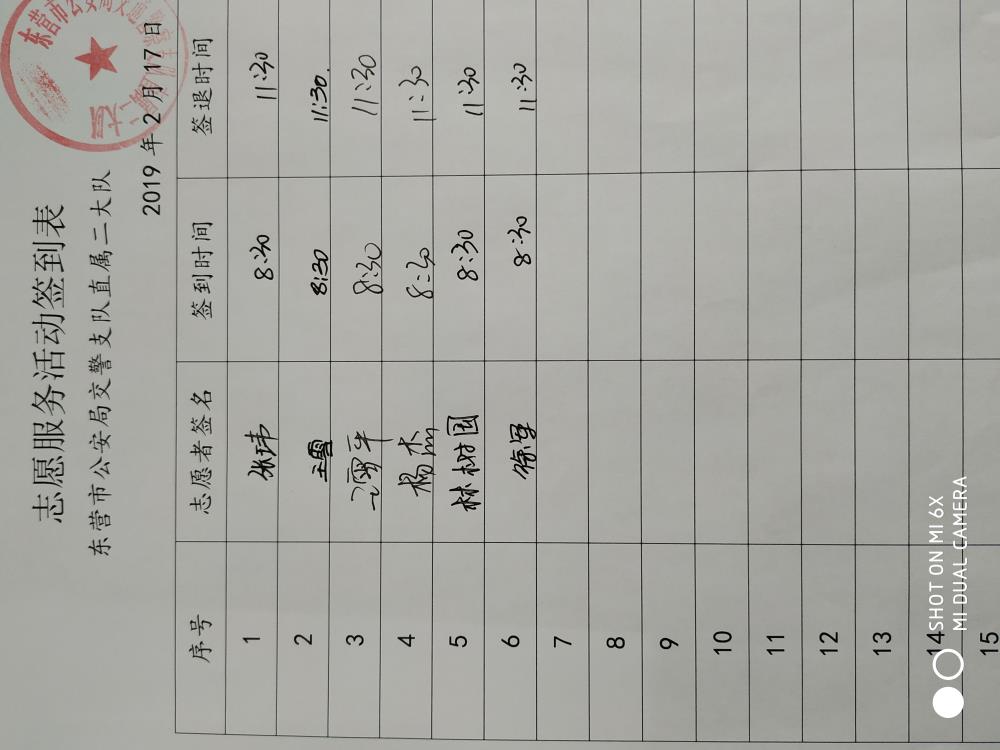 志愿服务活动签到表
东营市公安局交警支队直属二大队
2019 年 2 月 17 日
序号 志愿者签名 签到时间 签退时间
1 张玮 8:30 11:30
2 8:30 11:30.
3 8:30 11:30
4 杨杰 8:30 11:30
5 林树国 8:30 11:30
6 徐军 8:30 11:30
7
8
9
10
11
12
13
14
15
SHOT ON MI 6X
MI DUAL CAMERA